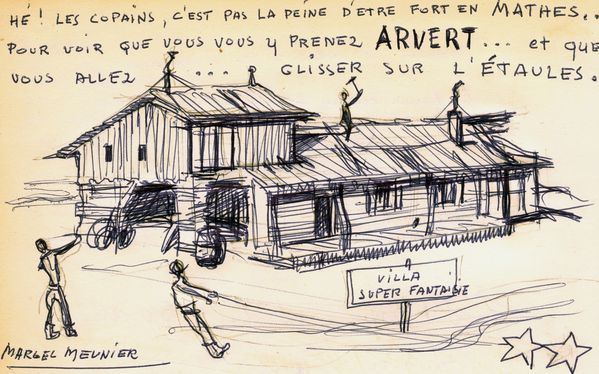 HÉ! LES COPAINS, C'EST PAS LA PEINE D'ETRE FORT EN MATHES..
POUR VOIR QUE VOUS VOUS Y PRENEZ ARVERT... et QUE
VOUS ALLEZ ... GLISSER SUR L'ÉTAULES.
VILLA
SUPER FANTAISIE
MARCEL MEUNIER